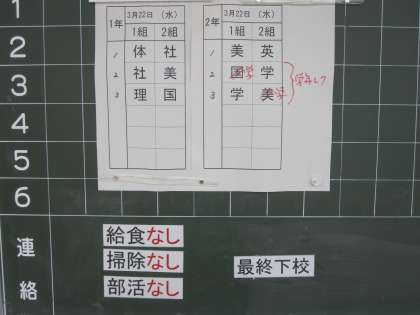 1
2
3
4
5
6
1年 3月22日 (水)
1組 2組
1 体 社
2 社 美
3 理 国
2年 3月22日 (水)
1組 2組
1 美 英
2 国 学 学
3 学 美 学
学年レク
連絡
給食なし
掃除なし
部活なし
最終下校